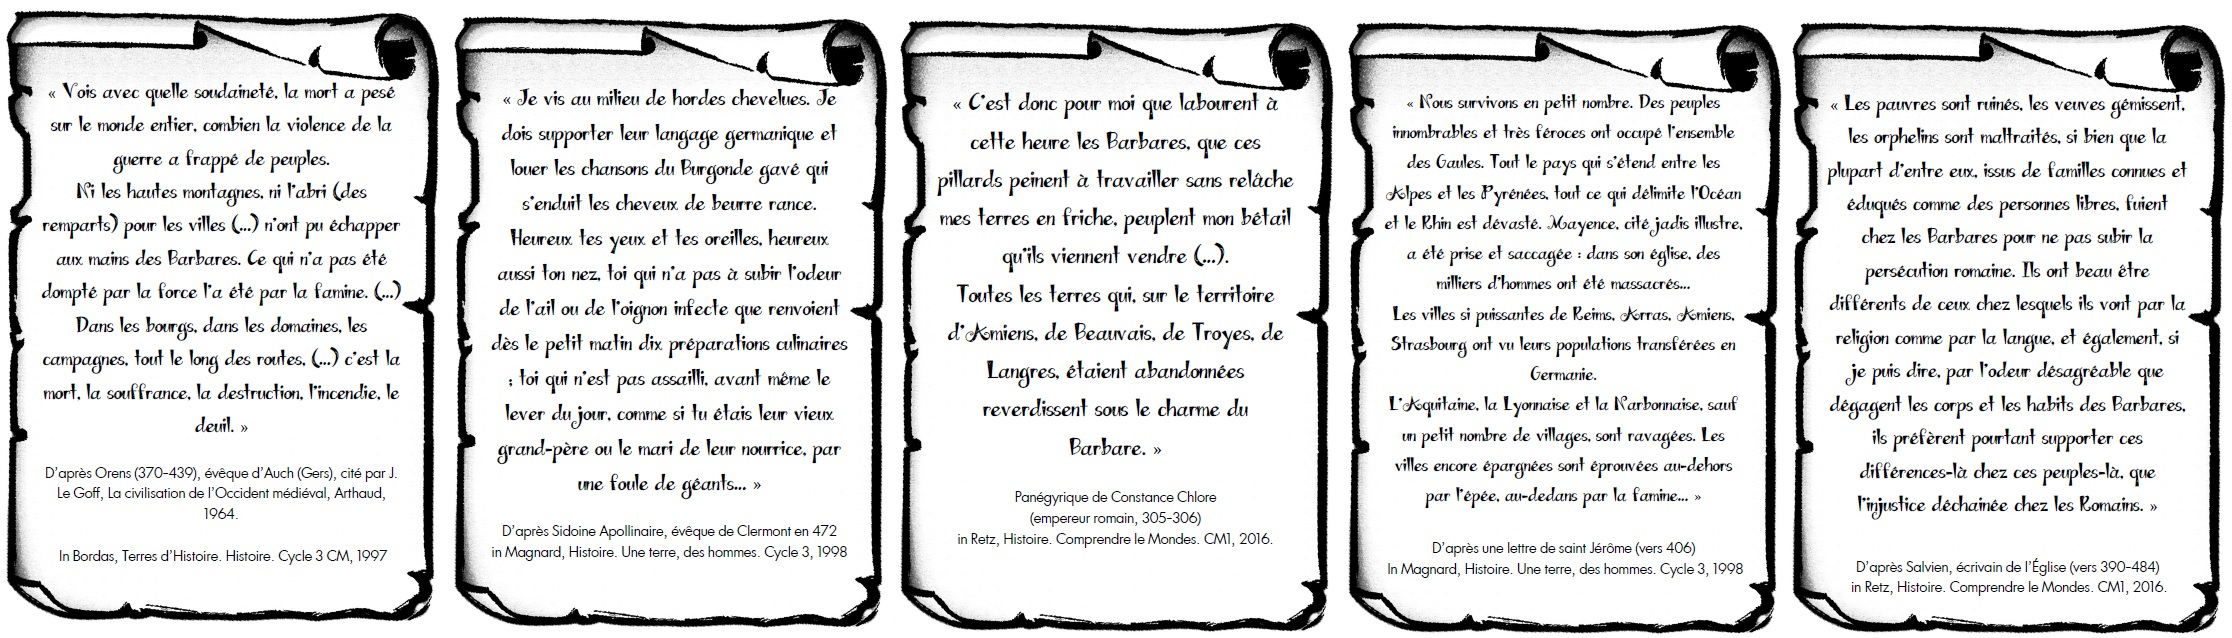 « Vois avec quelle soudaineté, la mort a pesé
sur le monde entier, combien la violence de la
guerre a frappé de peuples.
Ni les hautes montagnes, ni l'abri (des
remparts) pour les villes (...) n'ont pu échapper
aux mains des Barbares. Ce qui n'a pas été
dompté par la force l'a été par la famine. (...)
Dans les bourgs, dans les domaines, les
campagnes, tout le long des routes, (...) c'est la
mort, la souffrance, la destruction, l'incendie, le
deuil. »
D'après Orens (370-439), évêque d'Auch (Gers), cité par J.
Le Goff, La civilisation de l'Occident médiéval, Arthaud,
1964.
In Bordas, Terres d'Histoire. Histoire. Cycle 3 CM, 1997
« Je vis au milieu de hordes chevelues. Je
dois supporter leur langage germanique et
louer les chansons du Burgonde gavé qui
s'enduit les cheveux de beurre rance.
Heureux tes yeux et tes oreilles, heureux
aussi ton nez, toi qui n'a pas à subir l'odeur
de l'ail ou de l'oignon infecte que renvoient
dès le petit matin dix préparations culinaires
; toi qui n'est pas assailli, avant même le
lever du jour, comme si tu étais leur vieux
grand-père ou le mari de leur nourrice, par
une foule de géants... »
D'après Sidoine Apollinaire, évêque de Clermont en 472
in Magnard, Histoire. Une terre, des hommes. Cycle 3, 1998
« C'est donc pour moi que labourent à
cette heure les Barbares, que ces
pillards peinent à travailler sans relâche
mes terres en friche, peuplent mon bétail
qu'ils viennent vendre (...).
Toutes les terres qui, sur le territoire
d'Amiens, de Beauvais, de Troyes, de
Langres, étaient abandonnées
reverdissent sous le charme du
Barbare. »
Panégyrique de Constance Chlore
(empereur romain, 305-306)
in Retz, Histoire. Comprendre le Mondes. CM1, 2016.
« Nous survivons en petit nombre. Des peuples
innombrables et très féroces ont occupé l'ensemble
des Gaules. Tout le pays qui s'étend entre les
Alpes et les Pyrénées, tout ce qui délimite l'Océan
et le Rhin est dévasté. Mayence, cité jadis illustre,
a été prise et saccagée : dans son église, des
milliers d'hommes ont été massacrés...
Les villes si puissantes de Reims, Arras, Amiens,
Strasbourg ont vu leurs populations transférées en
Germanie.
L'Aquitaine, la Lyonnaise et la Narbonnaise, sauf
un petit nombre de villages, sont ravagées. Les
villes encore épargnées sont éprouvées au-dehors
par l'épée, au-dedans par la famine... »
D'après une lettre de saint Jérôme (vers 406)
In Magnard, Histoire. Une terre, des hommes. Cycle 3, 1998
« Les pauvres sont ruinés, les veuves gémissent,
les orphelins sont maltraités, si bien que la
plupart d'entre eux, issus de familles connues et
éduqués comme des personnes libres, fuient
chez les Barbares pour ne pas subir la
persécution romaine. Ils ont beau être
différents de ceux chez lesquels ils vont par la
religion comme par la langue, et également, si
je puis dire, par l'odeur désagréable que
dégagent les corps et les habits des Barbares,
ils préfèrent pourtant supporter ces
différences-là chez ces peuples-là, que
l'injustice déchaînée chez les Romains. »
D'après Salvien, écrivain de l'Église (vers 390-484)
in Retz, Histoire. Comprendre le Mondes. CM1, 2016.